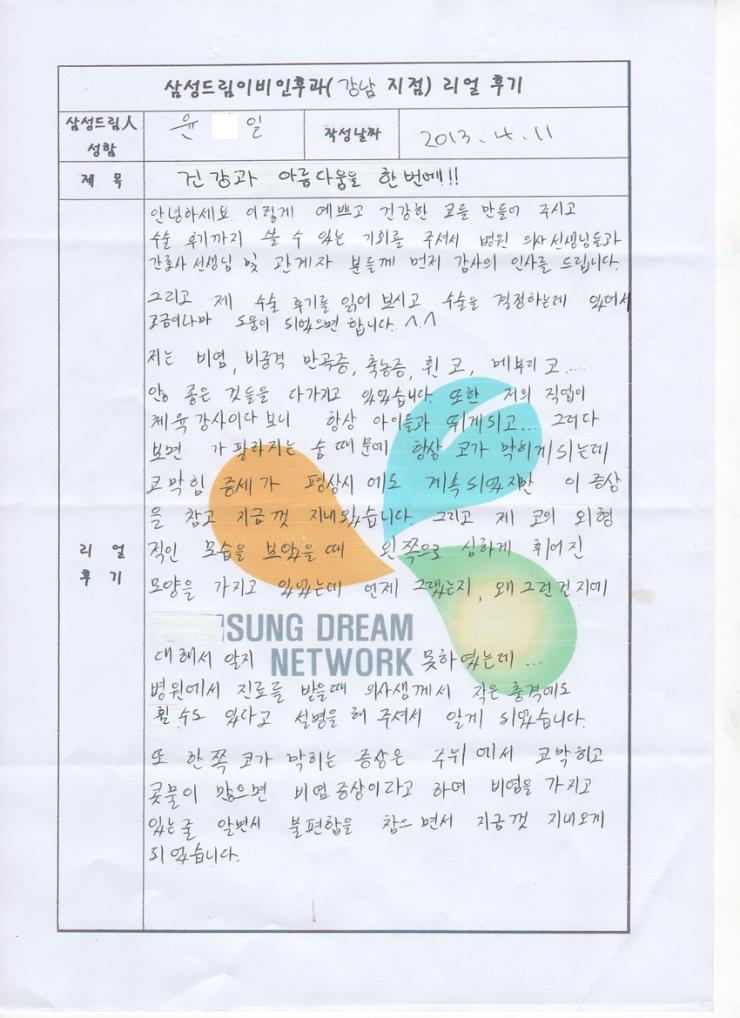 삼성드림이비인후과(강남 지점) 리얼 후기
삼성드림人 성함
윤 일
작성날짜
2013. 4. 11
제 목
건강과 아름다움을 한번에!!
리 얼 후 기
안녕하세요 이렇게 예쁘고 건강한 코를 만들어 주시고
수술 후기까지 쓸 수 있는 기회를 주셔서 병원 의사선생님들과
간호사 선생님 및 관계자 분들께 먼저 감사의 인사를 드립니다.
그리고 제 수술 후기를 읽어 보시고 수술을 결정하는데 있어서
조금이나마 도움이 되었으면 합니다. ^.^
저는 비염, 비중격 만곡증, 축농증, 휜 코, 메부리코.....
안 좋은 것들을 다가지고 있었습니다. 또한 저의 직업이
체육강사이다 보니 항상 아이들과 뛰게되고.... 그러다
보면 가팔라지는 숨 때문에 항상 코가 막히게 되는데
코막힘 증세가 평상시 에도 계속 되었지만 이 증상
을 참고 지금껏 지내왔습니다. 그리고 제 코의 외형
적인 모습을 보았을때 왼쪽으로 심하게 휘어진
모양을 가지고 있었는데 언제 그랬는지, 왜 그런건지에
SUNG DREAM
NETWORK
대해서 알지 못하였는데 ...
병원에서 진료를 받을때 의사생께서 작은 충격에도
휠 수도 있다고 설명을 해 주셔서 알게 되었습니다.
또 한쪽 코가 막히는 증상은 주위에서 코막히고
콧물이 많으면 비염증상이라고 하여 비염을 가지고
있는줄 알면서 불편함을 참으면서 지금껏 지내오게
되었습니다.